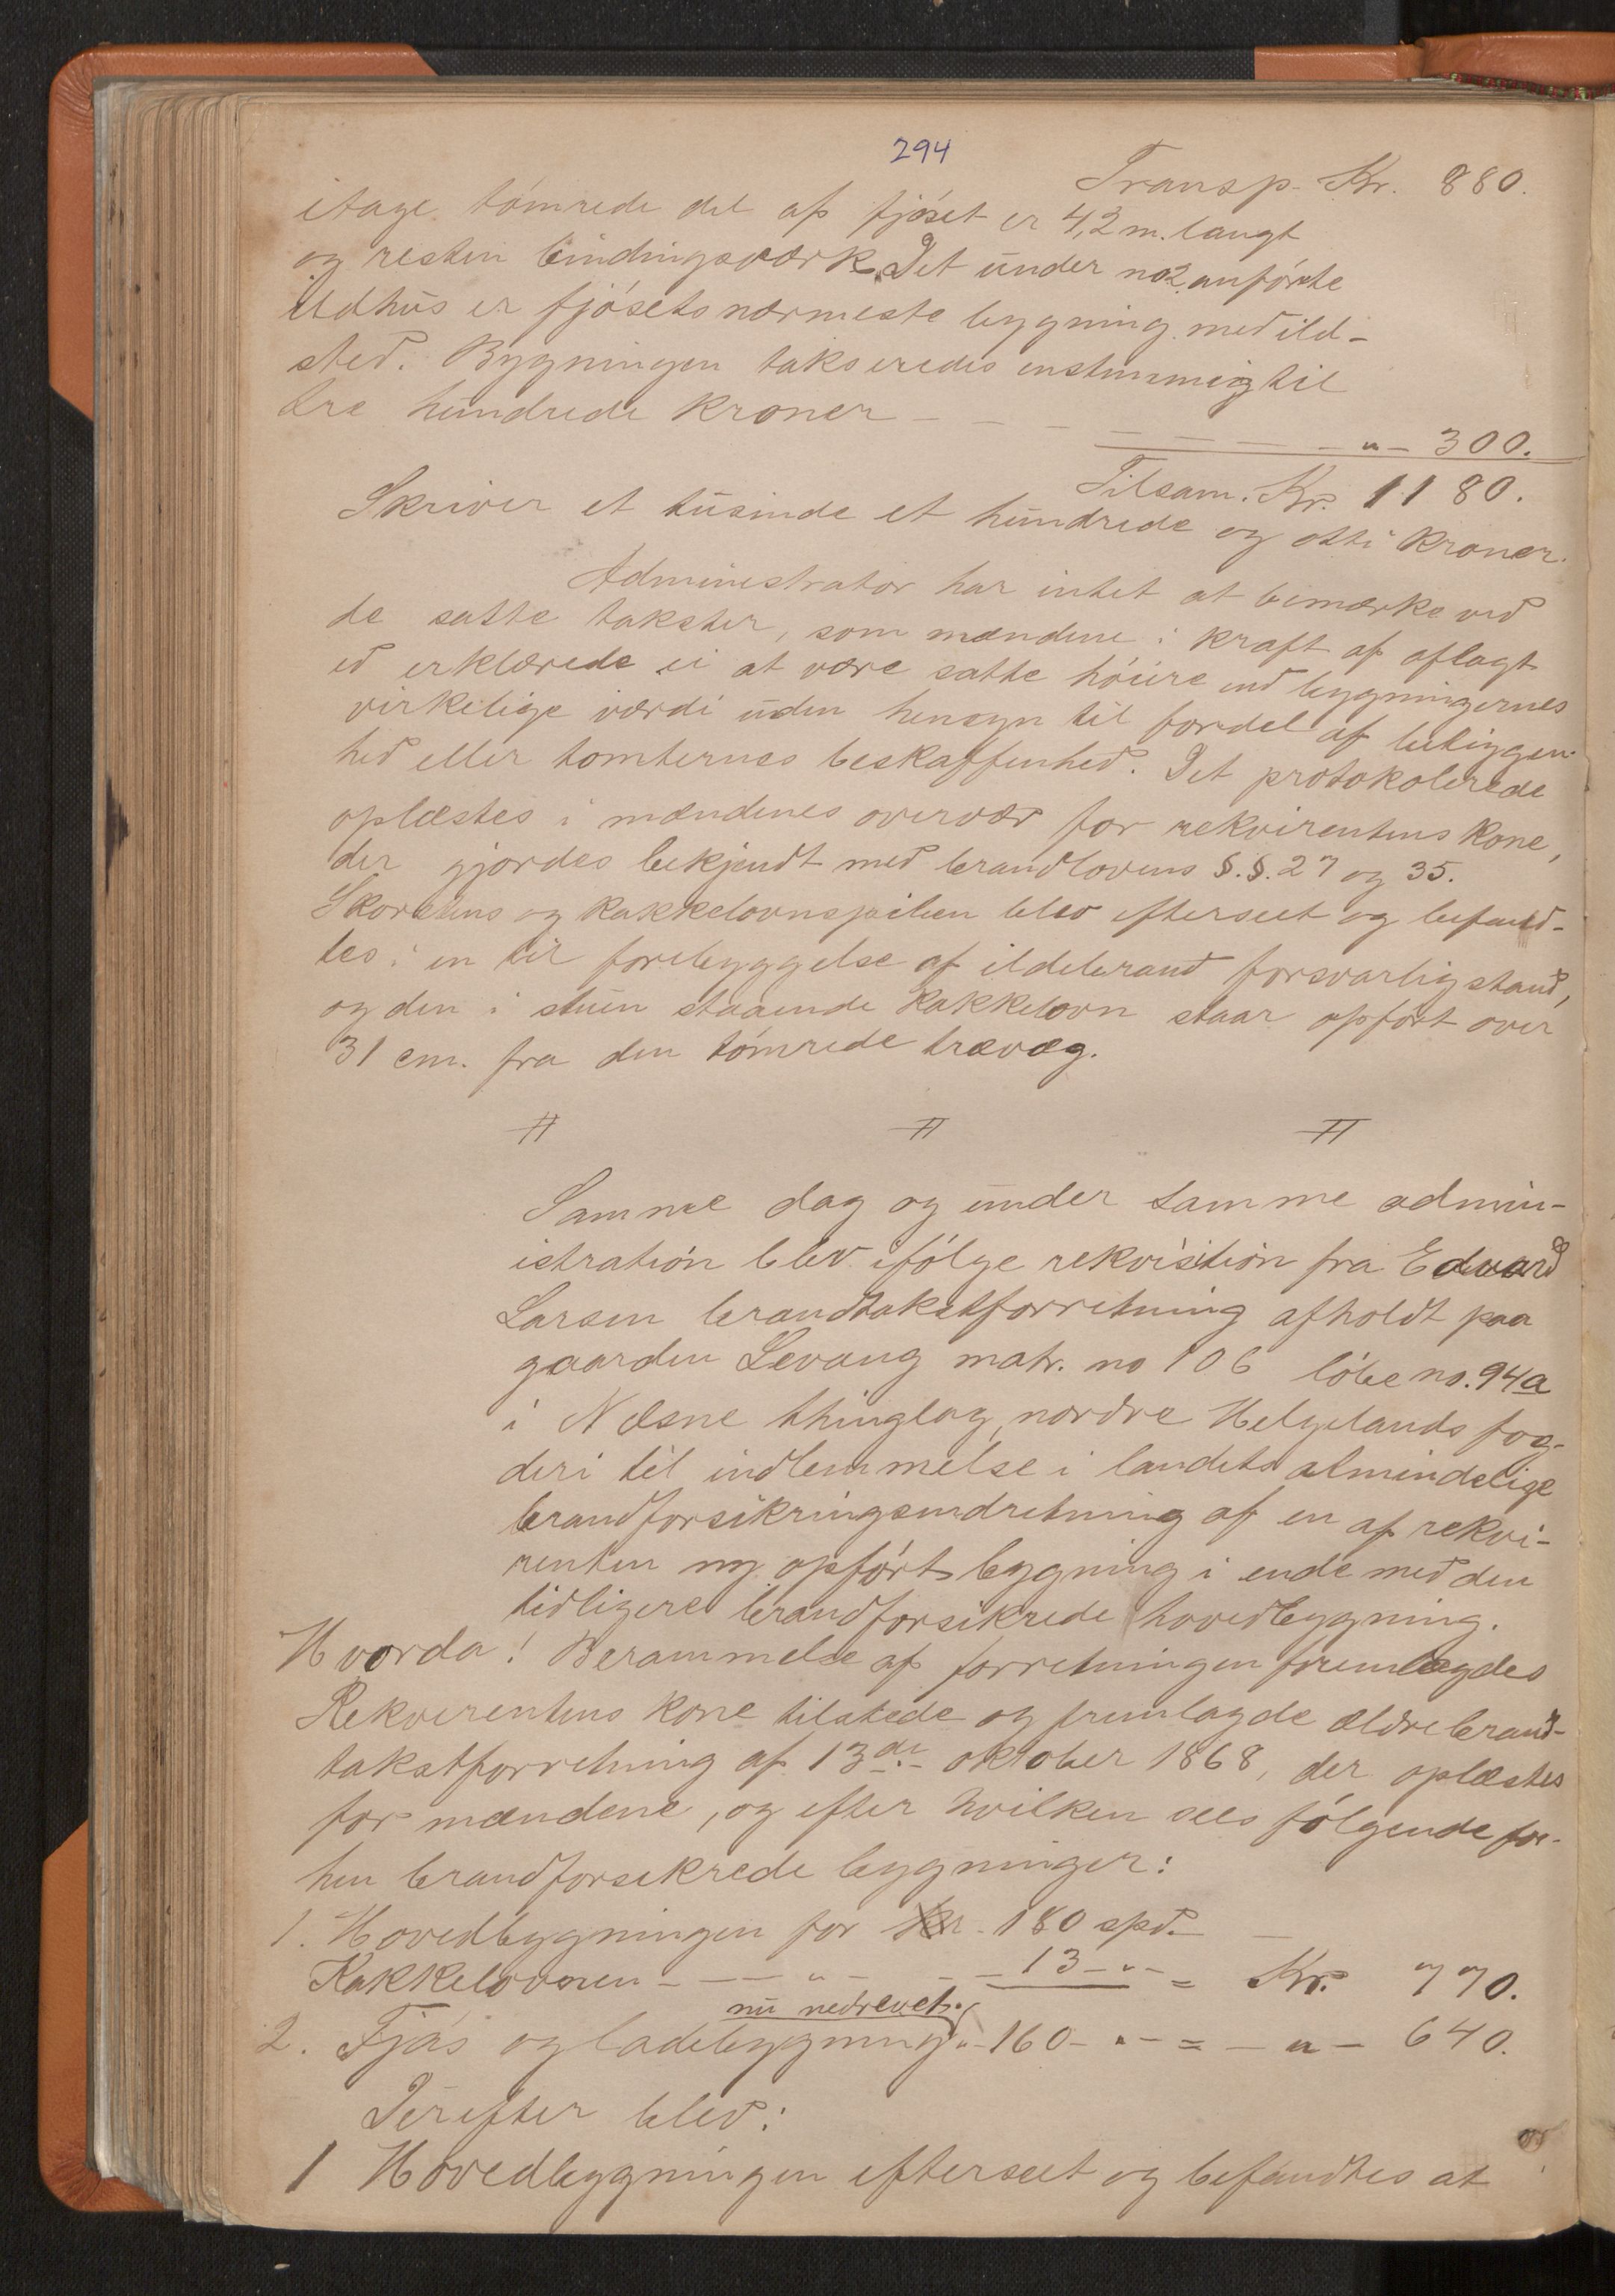 294
Transp. Kr. 880.
itage tømrede del af fjøset er 4,2 m. langt
og resten bindingsværk. Det under no 2 anførte
ildhus er fjøsets nærmeste bygning med ild-
sted. Bygningen takseredes enstemmig til
tre hundrede kroner - - - - - - - " - 300.
Tilsam. Kr. 1180.
Skriver et tusinde et hundrede og otti kroner.
Administrator har intet at bemærke ved
de satte takster, som mændene i kraft af aflagt
ed erklærede ei at være satte høiere end bygningernes
virkelige værdi uden hensyn til fordel af beliggen-
hed eller tomternes beskaffenhed. Det protokolerede
oplæstes i mændenes overvær for rekvirentens kone,
der gjordes bekjendt med brandlovens §.§. 27 og 35.
Skorstens og kakkelovnspiben blev efterseet og befand-
tes i en til forebyggelse af ildebrand forsvarlig stand,
og den i stuen staaende kakkelovn staar opført over
31 cm. fra den tømrede trævæg.
Samme dag og under samme admin-
istration blev ifølge rekvisition fra Edvard
Larsen brandtakstforretning afholdt paa
gaarden Levang matr. no 106 løbe no. 94a
i Næsne thinglag, nordre Helgelands fog-
deri til indlemmelse i landets almindelige
brandforsikringsindretning af en af rekvi-
renten ny opført bygning i ende med den
tidligere brandforsikrede hovedbygning.
Hvorda! Berammelse af forretningen fremlægdes
Rekverentens kone tilstede og fremlagde ældre brand-
takstforretning af 13de oktober 1868, der oplæstes
for mændene, og efter hvilken sees følgende for-
hen brandforsekrede bygninger:
1. Hovedbygningen for Kr. 180 spd. -
Kakkelovnen - - - " - - - 13 - " - = Kr. 770.
nu nedrevet.
2. Fjøs og ladebygning " - 160 - " - = - " - 640.
Derefter blev:
1 Hovedbygningen efterseet og befandtes at